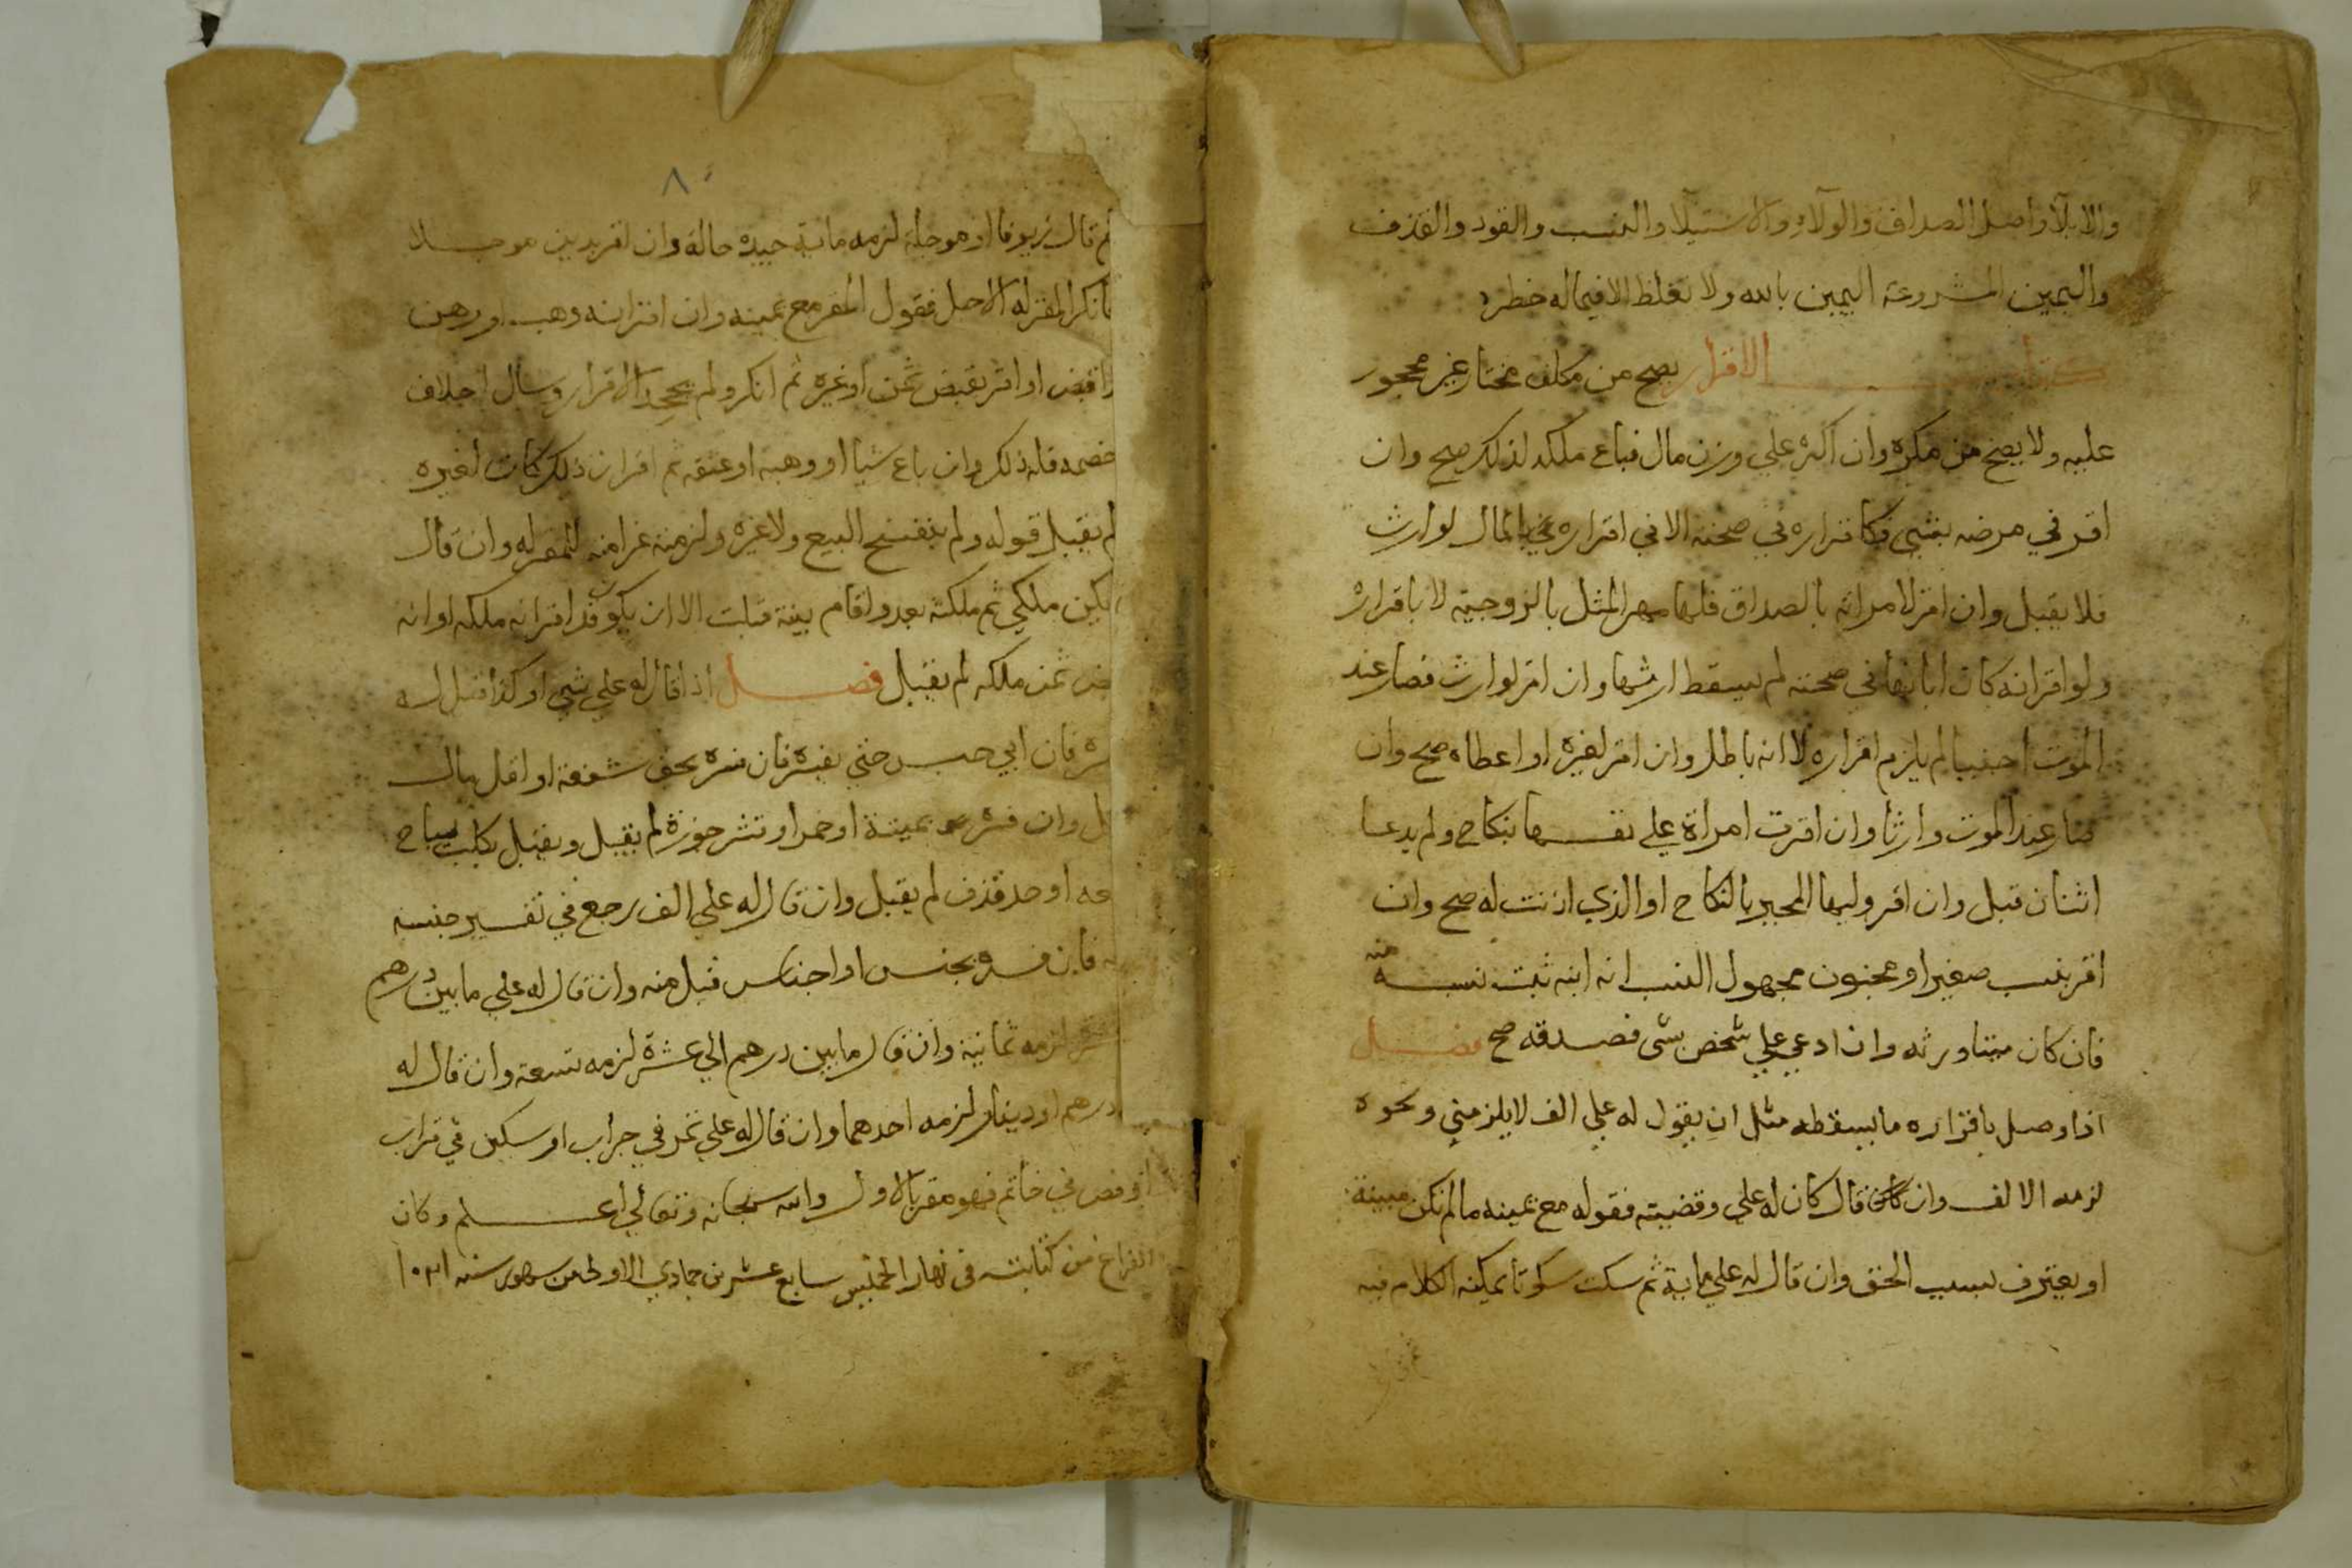 والايلا واصل الصداق والولاء والاستيلا والنسب والقود والقذف
واليمين المشروعة اليمين بالله ولا تغلظ الا فيما له خطر
كتاب الاقرار يصح من مكلف مختار غير محجور
عليه ولا يصح من مكره وان اكره علي وزن مال فباع ملكه لذلك صح وان
اقر في مرضه بشي فكاقراره في صحته الا في اقراره بالمال لوارث
فلا يقبل وان اقر لامراته بالصداق فلها مهر المثل بالزوجية لا باقراره
ولو اقر انه كان ابانها في صحته لم يسقط ارثها وان اقر لوارث فصار عند
الموت اجنبيا لم يلزم اقراره لا انه باطل وان اقر لغيره او اعطاه صح وان
صار عند الموت وارثا وان اقرت امراة علي نفسها بنكاح ولم يدعه
اثنان قبل وان اقر وليها المجبر بالنكاح او الذي اذنت له صح وان
اقر بنسب صغير او مجنون مجهول النسب انه ابنه ثبت نسبه منه
فان كان ميتا ورثه وان ادعي علي شخص بشي فصدقه صح فصل
اذا وصل باقراره ما يسقطه مثل ان يقول له علي الف لا يلزمني ونحوه
لزمه الالف وان قال كان له علي وقضيته فقوله مع يمينه ما لم تكن بينة
او يعترف بسبب الحق وان قال له علي ماية ثم سكت سكوتا يمكنه الكلام فيه
٨٠
ثم قال زيوفا او موجلة لزمه ماية جيدة حالة وان اقر بدين موجلا
فانكر المقر له الاجل فقول المقر مع يمينه وان اقر انه وهب او رهن
واقبض او اقر بقبض ثمن او غيره ثم انكر ولم يجحد الاقرار وسال احلاف
خصمه فله ذلك وان باع شيا او وهبه او عتقه ثم اقر ان ذلك كان لغيره
لم يقبل قوله ولم ينفسخ البيع ولا غيره ولزمته غرامته للمقر له وان قال
يكن ملكي ثم ملكته بعد واقام بينة قبلت الا ان يكون قد اقر انه ملكه او انه
قبض ثمن ملكه لم يقبل فصل اذا قال له علي شي او كذا قيل له
فسره فان ابي حبس حتي يفسره فان فسره بحق شفعة او اقل مال
قبل وان فسره بميتة او خمر او قشر جوزة لم يقبل ويقبل بكلب مباح
نفعه او حد قذف لم يقبل وان قال له علي الف رجع في تفسير جنسه
فان فسره بجنس او اجناس قبل منه وان قال له علي ما بين درهم
لزمه ثمانية وان قال ما بين درهم الي عشرة لزمه تسعة وان قال له
درهم او دينار لزمه احدهما وان قال له علي تمر في جراب او سكين في قراب
او فص في خاتم فهو مقر بالاول والله سبحانه وتعالي اعلم وكان
الفراغ من كتابته في نهار الخميس سابع عشر من جمادي الاولي من شهور سنه